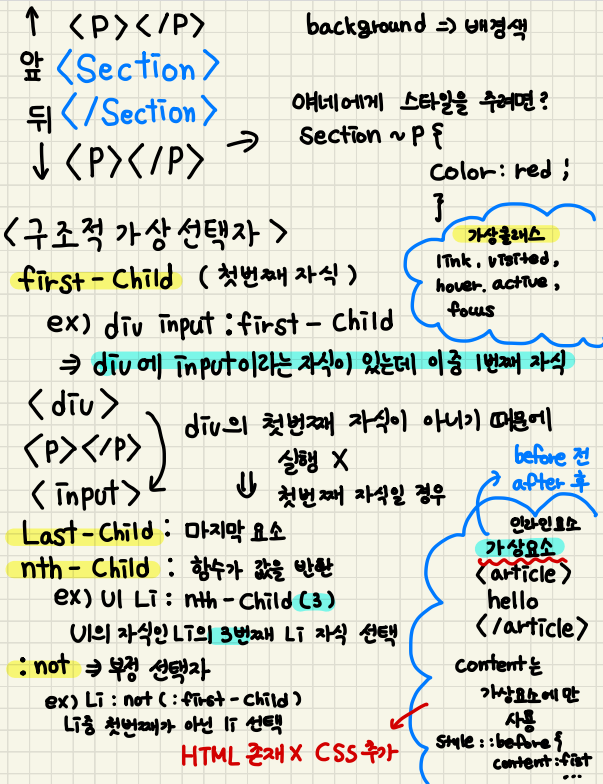 ↑ <P></P>
앞 <Section>
뒤 </Section>
↓ <P></P> →
background => 배경색
얘네에게 스타일을 주려면?
Section ~ P {
color: red ;
}
<구조적 가상 선택자>
가상클래스
link, visited,
hover, active,
focus
first-Child (첫번째 자식)
ex) div input :first-Child
⇒ div에 input이라는 자식이 있는데 이중 1번째 자식
<div>
<P></P>
<input>
div의 첫번째 자식이 아니기 때문에
실행 X
⇓ 첫번째 자식일 경우
before 전
after 후
Last-Child : 마지막 요소
nth-Child : 함수가 값을 반환
ex) Ul Li : nth-Child (3)
Ul의 자식인 Li의 3번째 Li 자식 선택
:not ⇒ 부정 선택자
ex) Li : not ( :first-Child)
Li중 첫번째가 아닌 li 선택
인라인요소
가상요소
<article>
hello
</article>
content는
가상요소에만
사용
Style ::before {
content:fist
...
HTML 존재 X CSS 추가